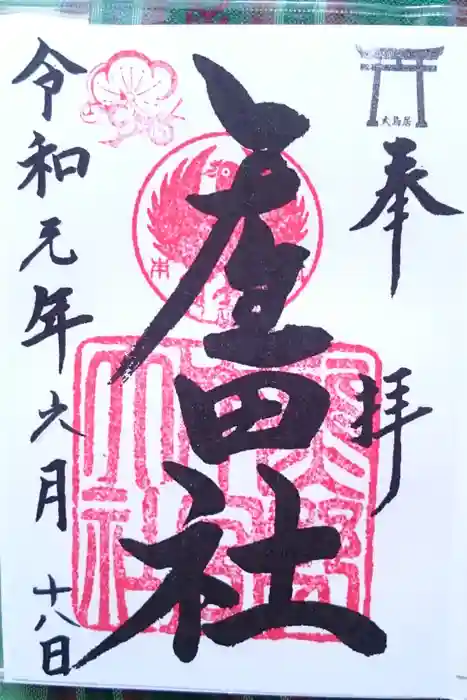 大鳥居
奉拝
産田社
令和元年六月十八日